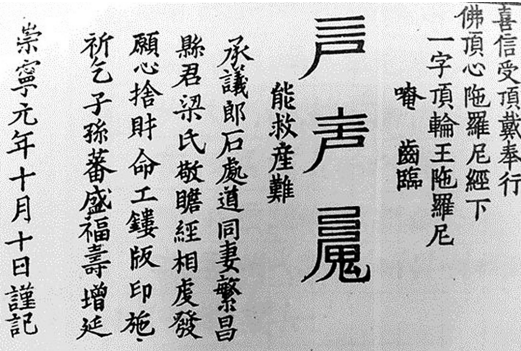 喜信受頂戴奉行
佛頂心陁羅尼經下
一字頂輪王陁羅尼
唵 齒臨
能救産難
承議郎石處道同妻繁昌
縣君梁氏敬瞻經相虔發
願心捨財命工鏤版印施
祈乞子孫蕃盛福壽增延
崇寧元年十月十日謹記